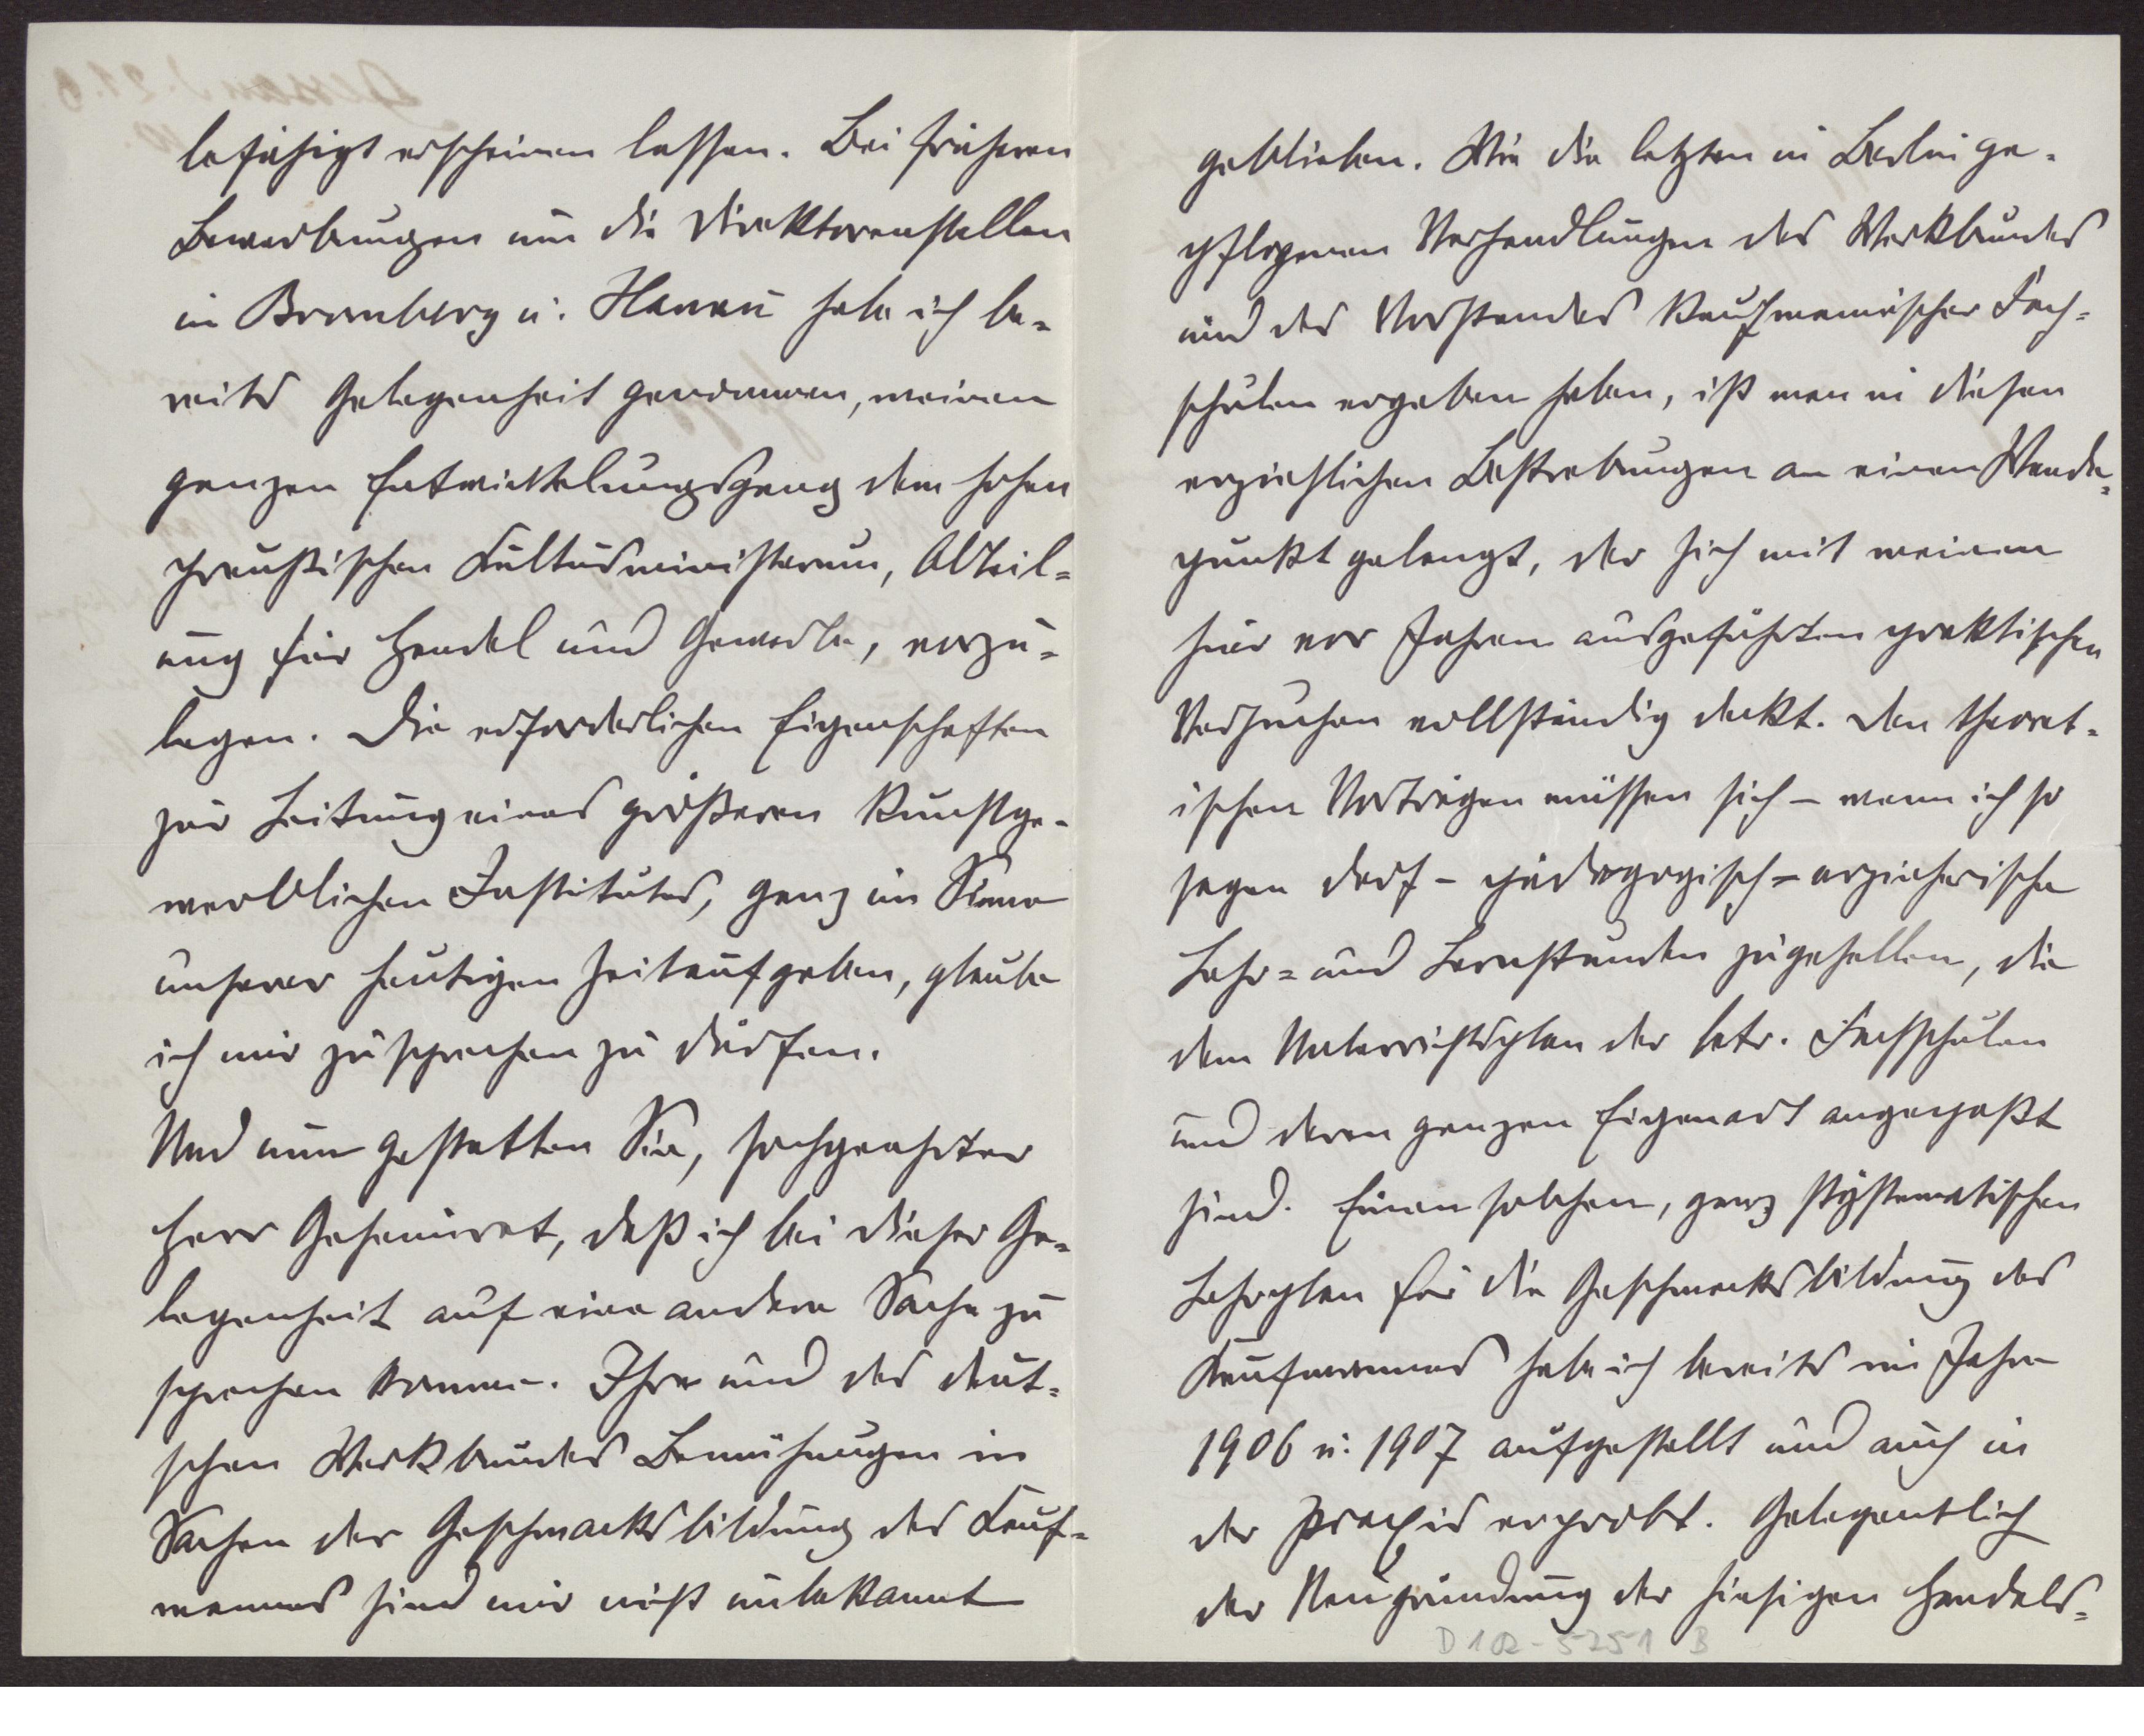 befähigt erscheinen lassen. Bei früheren
Bewerbungen um die Direktorenstellen
in Bromberg u. Hanau habe ich be=
reits Gelegenheit genommen, meinen
ganzen Entwickelungsgang dem hohen
preußischen Kultusministerium, Abteil=
ung für Handel und Gewerbe, vorzu=
legen. Die erforderlichen Eigenschaften
zur Leitung eines größeren Kunstge=
werblichen Institutes, ganz im Sinne
unserer heutigen Zeitaufgaben, glaube
ich mir zusprechen zu dürfen.
Und nun gestatten Sie, hochgeehrter
Herr Geheimrat, daß ich bei dieser Ge=
legenheit auf eine andere Sache zu
sprechen komme. Ihre und des deut=
schen Werkbundes Bemühungen in
Sachen der Geschmacksbildung des Kauf=
mannes sind mir nicht unbekannt
geblieben. Wie die letzten in Berlin ge=
pflogenen Verhandlungen des Werkbundes
und des Vorstandes Kaufmännischer Fach=
schulen ergeben haben, ist man in diesen
erziehlichen Bestrebungen an einen Wende=
punkt gelangt, der sich mit meinen
hier vor Jahren ausgeführten praktischen
Versuchen vollständig deckt. Den theoret=
ischen Vorträgen müssen sich – wenn ich so
sagen darf – pädagogisch=erzieherische
Lehr= und Lernstunden zugesellen, die
dem Unterrichtsplan der betr. Fachschulen
und deren ganzen Eigenart angepaßt
sind. Einen solchen, ganz systematischen
Lehrplan für die Geschmacksbildung des
Kaufmannes habe ich bereits im Jahre
1906 u. 1907 aufgestellt und auch in
der Praxis erprobt. Gelegentlich
der Neugründung der hiesigen Handels=
D 102-5251 B